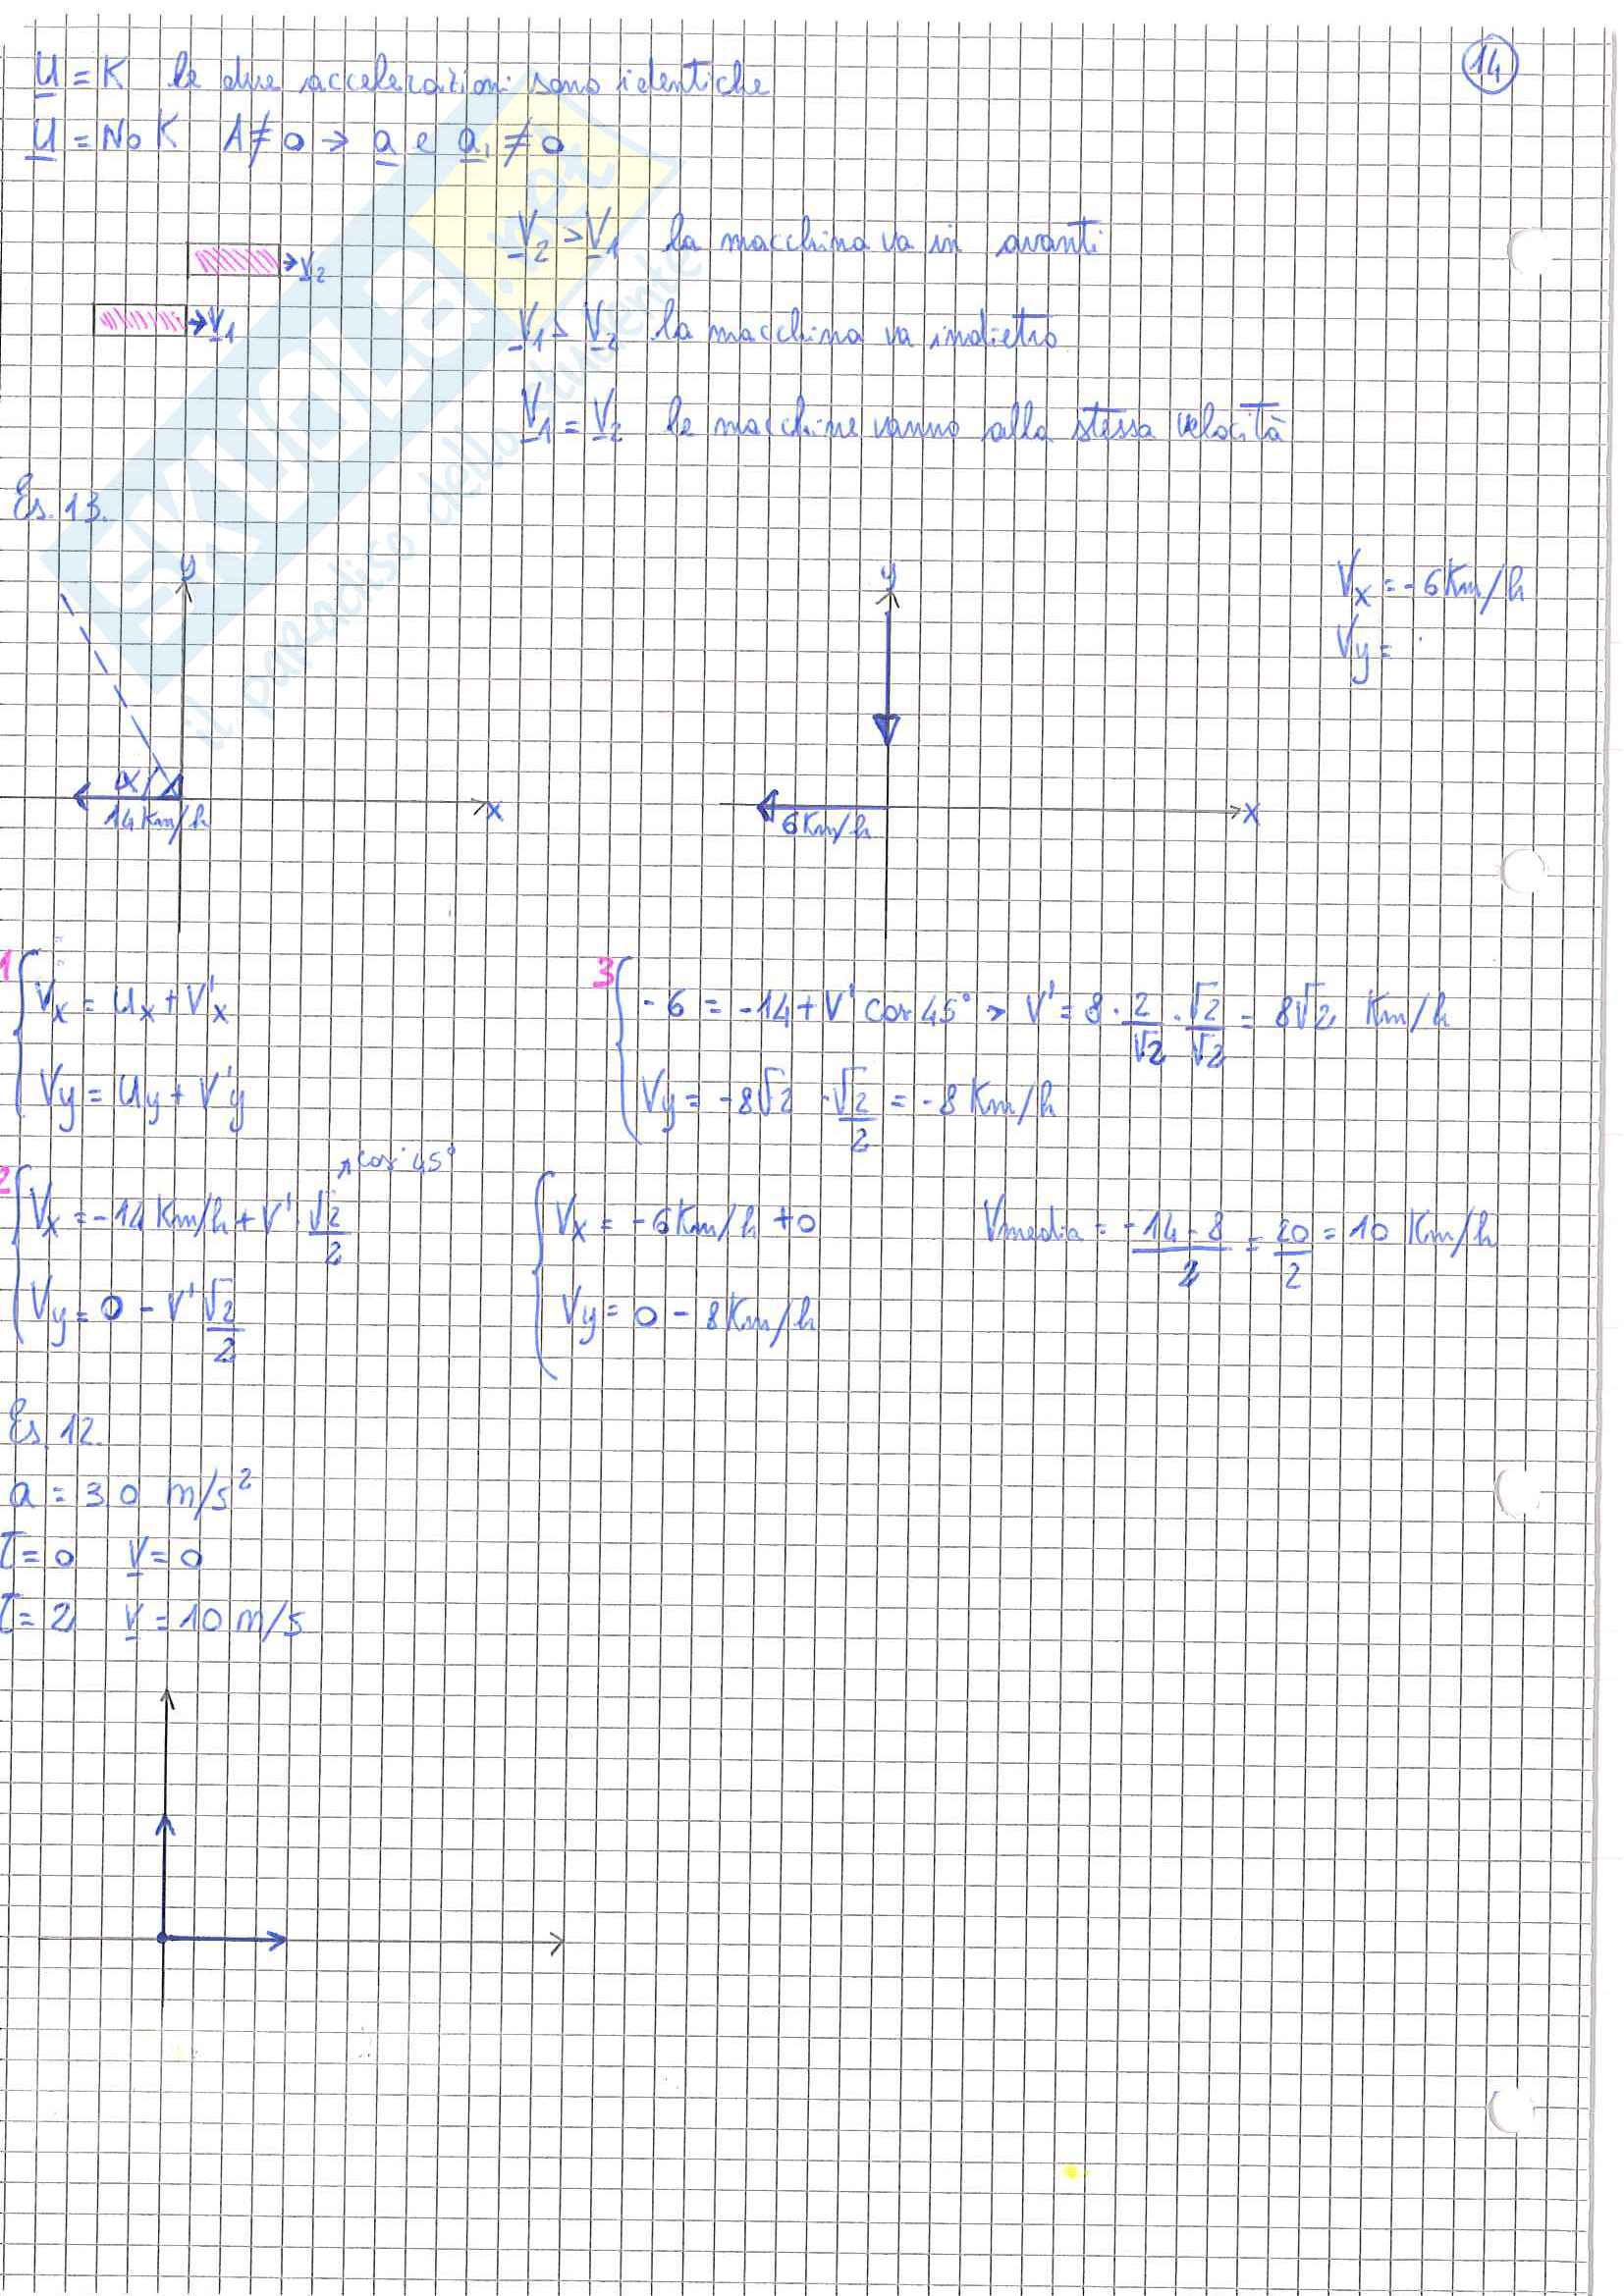 14
U = K le due accelerazioni sono identiche
U = No K A ≠ 0 → a e a₁ ≠ 0
V₂ > V₁ la macchina va in avanti
V₂
V₁
V₁ > V₂ la macchina va indietro
V₁ = V₂ le macchine vanno alla stessa velocità
SKUOLA.net
il paradiso dello studente
Es. 13.
y
α
14 Km/h
x
y
6 Km/h
x
Vx = -6 Km/h
Vy =
1
Vx = Ux + V'x
Vy = Uy + V'y
3
-6 = -14 + V' cos 45° > V' = 8 · 2/√2 · √2/√2 = 8√2 Km/h
Vy = -8√2 · √2/2 = -8 Km/h
2
cos 45°
Vx = -14 Km/h + V' √2/2
Vy = 0 - V' √2/2
Vx = -6 Km/h + 0
Vy = 0 - 8 Km/h
Vmedia = -14-8/2 = 20/2 = 10 Km/h
Es. 12.
a = 30 m/s²
t = 0 V = 0
t = 2 V = 10 m/s